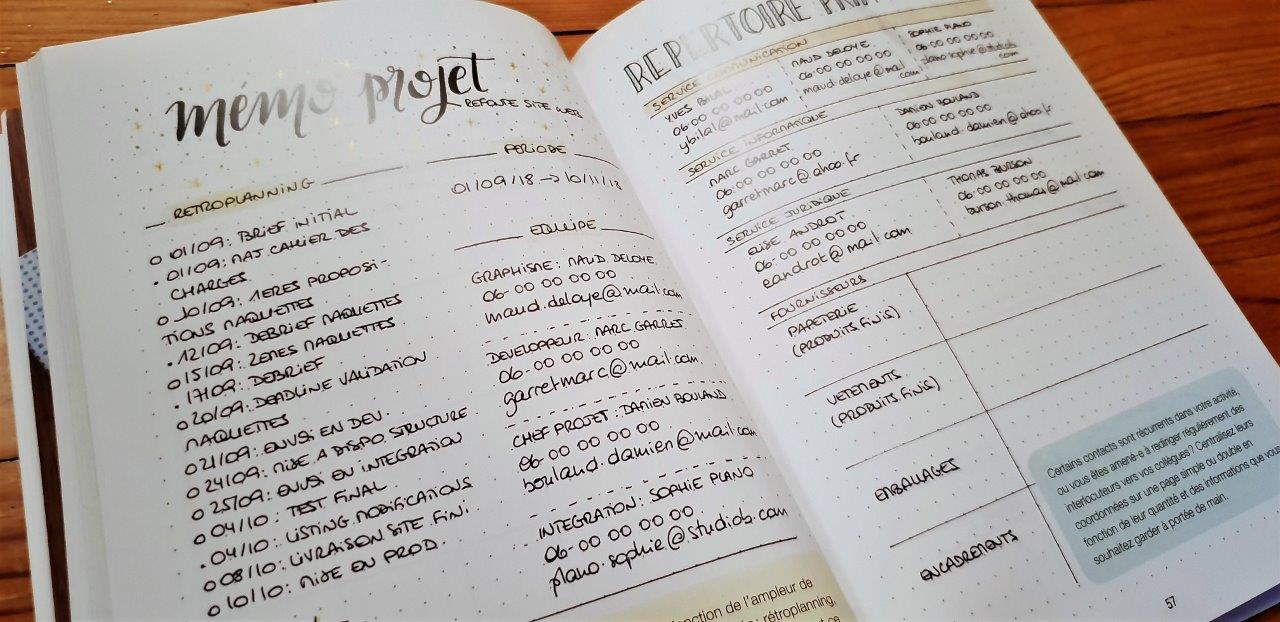 mémo projet
REFONTE SITE WEB
RETROPLANNING
01/09 : BRIEF INITIAL
01/09 : MAJ CAHIER DES
CHARGES
10/09 : 1ERES PROPOSI-
TIONS MAQUETTES
12/09 : DEBRIEF MAQUETTES
15/09 : 2EMES MAQUETTES
17/09 : DEBRIEF
20/09 : DEADLINE VALIDATION
MAQUETTES
21/09 : ENVOI EN DEV.
24/09 : MISE A DISPO STRUCTURE
25/09 : ENVOI EN INTEGRATION
04/10 : TEST FINAL
04/10 : LISTING MODIFICATIONS
08/10 : LIVRAISON SITE FINI
10/10 : MISE EN PROD.
PERIODE
01/09/18 → 10/11/18
EQUIPE
GRAPHISME : MAUD DELOYE
06-00 00 00 00
maud.deloye@mail.com
DEVELOPPEUR : MARC GARRET
06-00 00 00 00
garretmarc@mail.com
CHEF PROJET : DAMIEN BOULAND
06-00 00 00 00
bouland.damien@mail.com
INTEGRATION : SOPHIE PLANO
06-00 00 00 00
plano.sophie@studiob.com
fonction de l'ampleur de
: rétroplanning,
REPERTOIRE
SERVICE COMMUNICATION
YVES BILAL
06-00 00 00 00
ybilal@mail.com
MAUD DELOYE
06-00 00 00 00
maud.deloye@mail
.com
SOPHIE PLANO
06-00 00 00 00
plano.sophie@studiob.
com
SERVICE INFORMATIQUE
MARC GARRET
06-00 00 00 00
garretmarc@ahoo.fr
DAMIEN BOULAND
06-00 00 00 00
bouland.damien@ahoo.fr
SERVICE JURIDIQUE
ELISE ANDROT
06-00 00 00 00
eandrot@mail.com
THOMAS BURSON
06-00 00 00 00
burson.thomas@mail.com
FOURNISSEURS
PAPETERIE
(PRODUITS FINIS)
VETEMENTS
(PRODUITS FINIS)
EMBALLAGES
ENCADREMENTS
Certains contacts sont récurrents dans votre activité,
ou vous êtes amené-e à rediriger régulièrement des
interlocuteurs vers vos collègues ? Centralisez leurs
coordonnées sur une page simple ou double en
fonction de leur quantité et des informations que vous
souhaitez garder à portée de main.
57